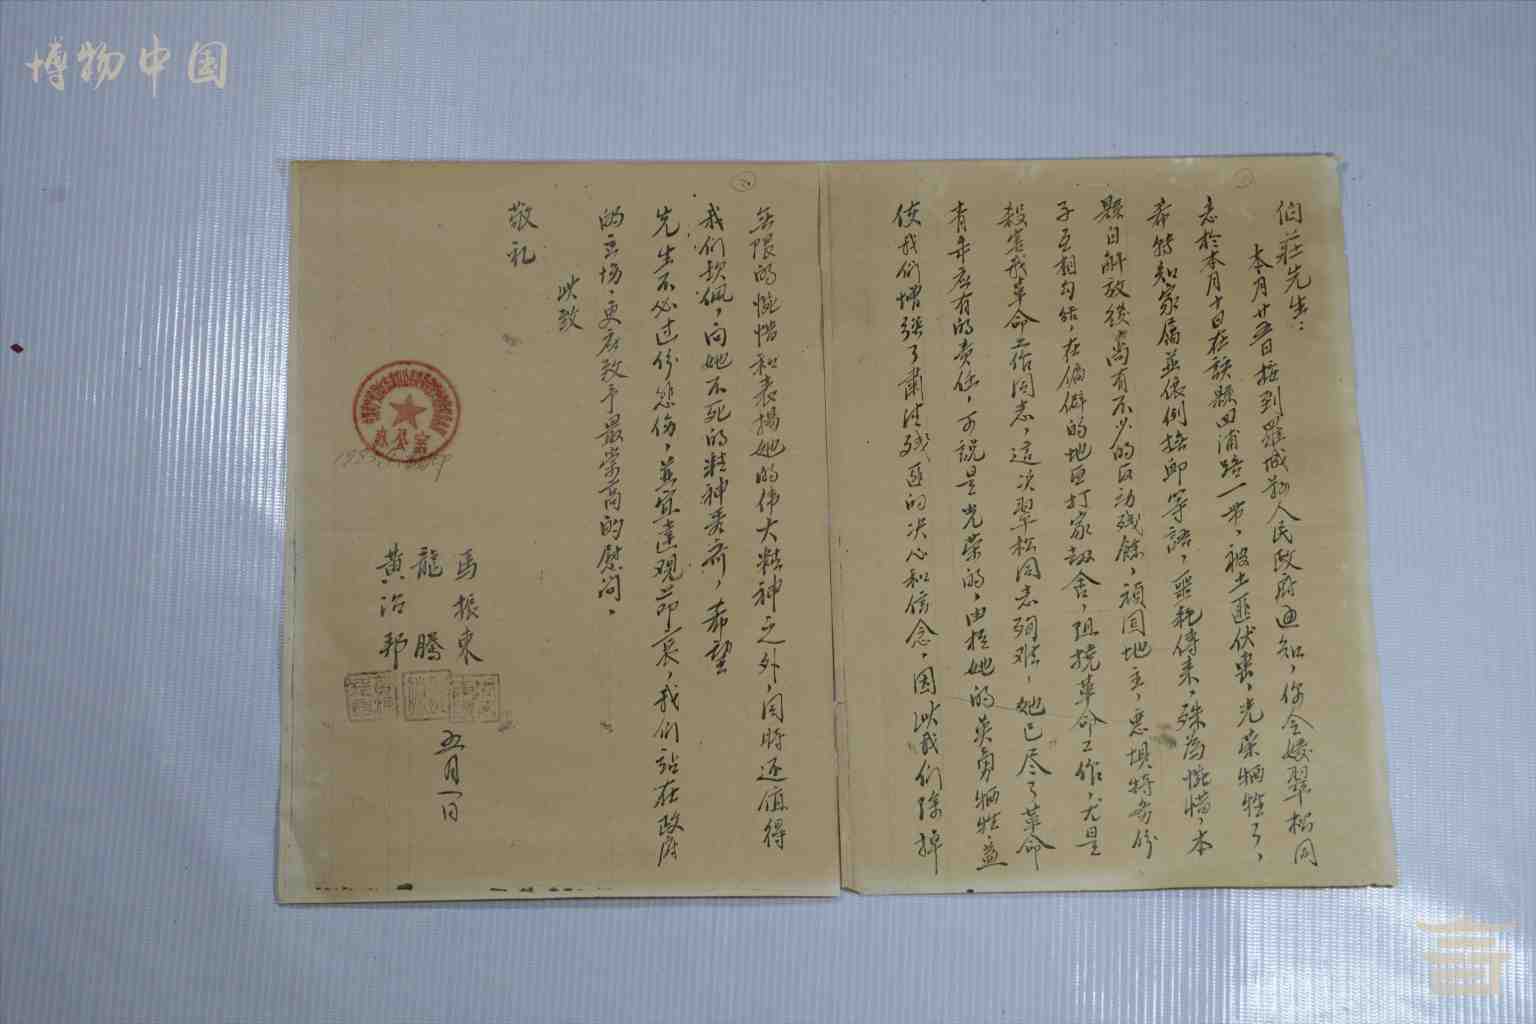 博物中国
伯莊先生：
本月廿五日接到羅城縣人民政府通知，你令媛翠松同
志於本月十日在該縣四浦路一带，被土匪伏击，光荣牺牲了，
希转知家属並依例撫卹等語，噩耗傳来，殊為惋惜，本
縣自解放後尚有不少的反动残餘，頑固地主，惡垻特务份
子互相勾结，在偏僻的地区打家刼舍，阻撓革命工作，尤是
殺害我革命工作同志，这次翠松同志殉难，她已尽了革命
青年应有的责任，可說是光荣的，由於她的英勇牺牲，益
使我们增强了肅清残匪的决心和信念，因此我们除掉
無限的惋惜和表揚她的伟大精神之外，同時还值得
我们欽佩，向她不死的精神看齐，希望
先生不必过份悲伤，並宜達观节哀，我们站在政府
的立場，更应致予最崇高的慰问。
此致
敬礼
馬振東
龍騰
黄治邦
五月一日